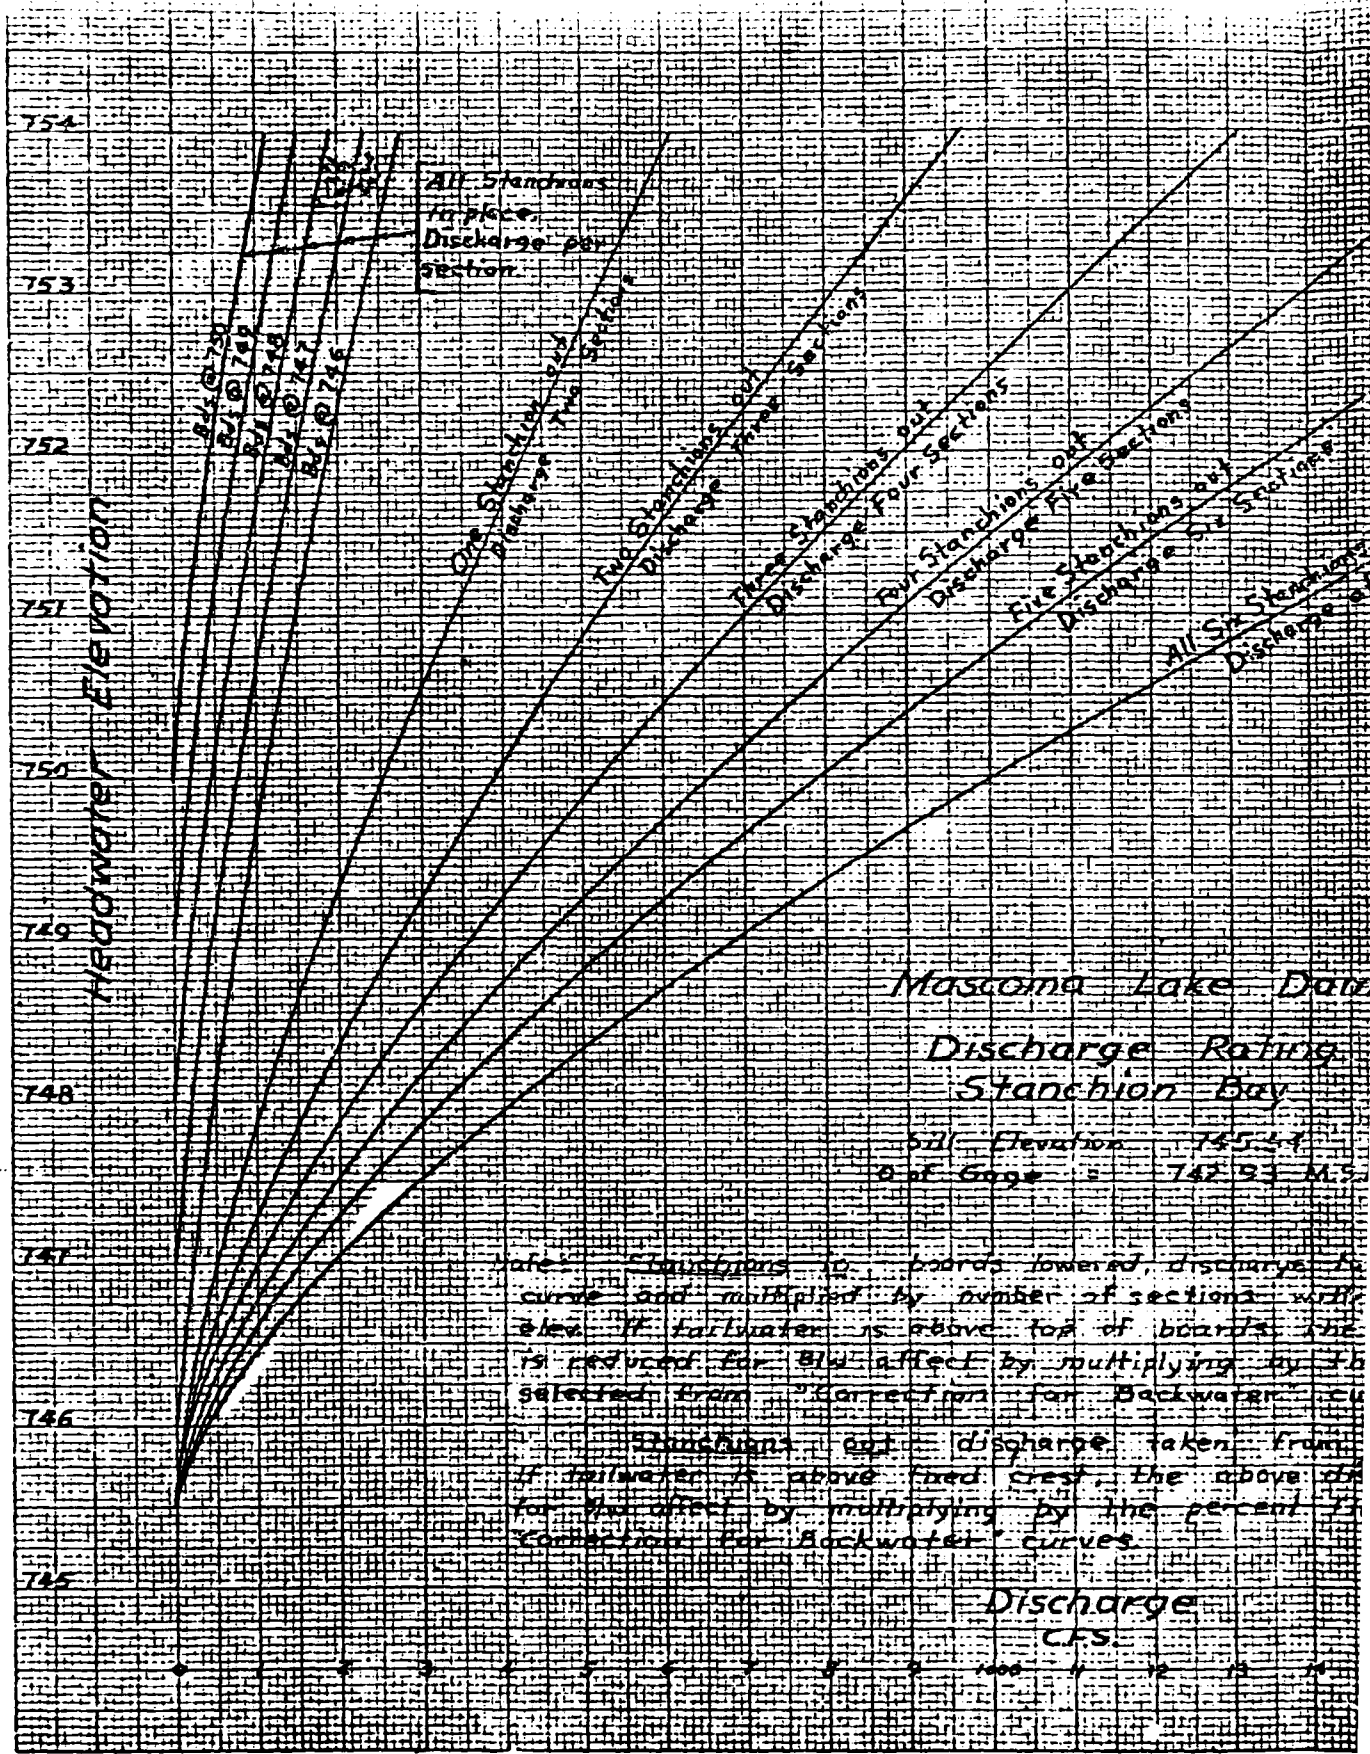 754
753
752
751
750
749
748
747
746
745
Headwater Elevation
All Stanchions
in place.
Discharge per
section.
Bds @ 750
Bds @ 749
Bds @ 748
Bds @ 747
Bds @ 746
One Stanchion out
Discharge Two Sections
Two Stanchions out
Discharge Three Sections
Three Stanchions out
Discharge Four Sections
Four Stanchions out
Discharge Five Sections
Five Stanchions out
Discharge Six Sections
All Six Stanchions
Discharge
Mascoma Lake Dam
Discharge Rating
Stanchion Bay
Sill Elevation 745.44
0 of Gage = 742.93 M.S.
Stanchions in boards lowered, discharge
curve and multiplied by number of sections
elev. If tailwater is above top of boards,
is reduced for B/W affect by multiplying by
selected from "Correction for Backwater" cu
Stanchions out discharge taken from
If tailwater is above fixed crest, the above
for B/W affect by multiplying by the percent
"Correction for Backwater" curves.
Discharge
CFS.
0 1 2 3 4 5 6 7 8 9 1000 11 12 13 14